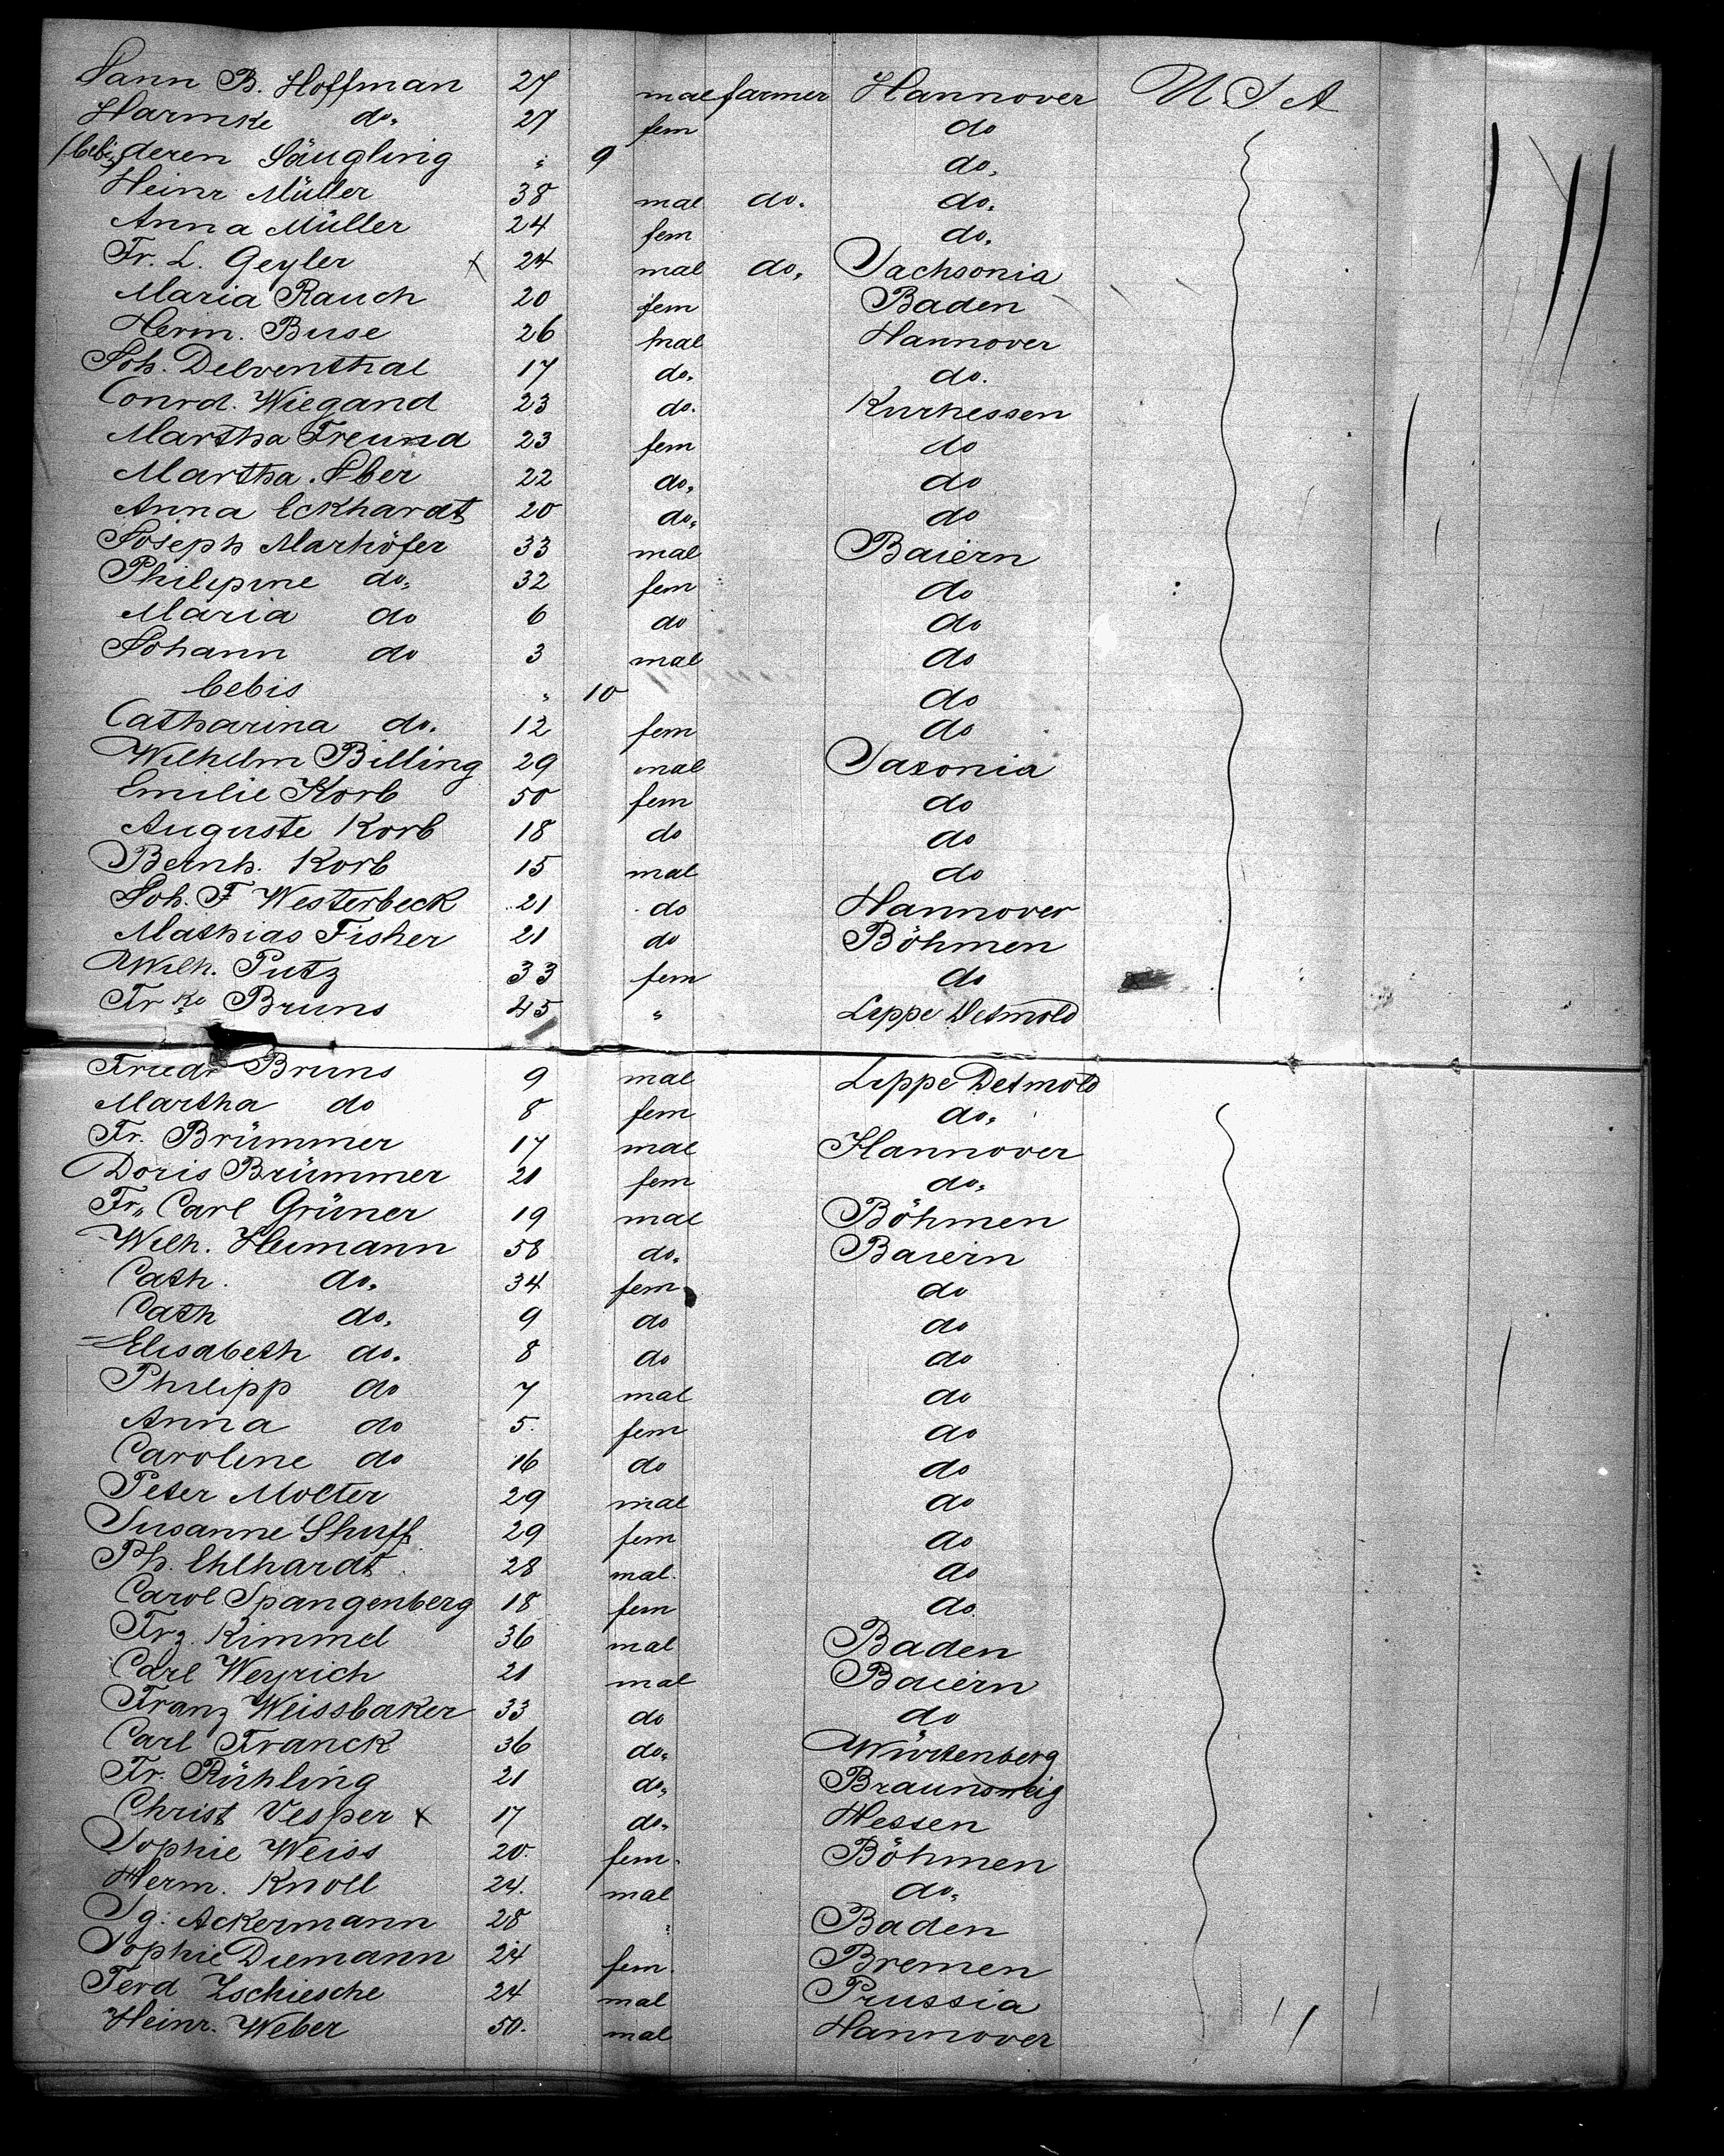 Jann B. Hoffman 27 mal farmer Hannover U. S A
Harmke do. 27 fem do
(bebis) deren Säugling " 9 do.
Heinr Müller 38 mal do. do.
Anna Müller 24 fem do.
Fr. L. Geyler x 24 mal do. Sachsonia
Maria Rauch 20 fem Baden
Herm. Buse 26 mal Hannover
Joh. Delventhal 17 do. do.
Conrd. Wiegand 23 do. Kurhessen
Martha Freund 23 fem do
Martha Iber 22 do. do
Anna Eckhardt 20 do. do
Joseph Marhöfer 33 mal Baiern
Philipine do. 32 fem do
Maria do 6 do do
Johann do 3 mal do
bebis " 10 do
Catharina do. 12 fem do
Wilhelm Billing 29 mal Saxonia
Emilie Korb 50 fem do
Auguste Korb 18 do do
Bernh. Korb 15 mal do
Joh. F Westerbeck 21 do Hannover
Mathias Fisher 21 do Böhmen
Wilh. Putz 33 fem do
Fr ke Bruns 45 " Lippe Detmold
Friedr Bruns 9 mal Lippe Detmold
Martha do 8 fem do.
Fr. Brümmer 17 mal Hannover
Doris Brümmer 21 fem do.
Fr. Carl Grüner 19 mal Böhmen
Wilh. Heimann 58 do. Baiern
Cath. do. 34 fem. do
Cath do. 9 do do
Elisabeth do. 8 do do
Philipp do 7 mal do
Anna do 5. fem do
Caroline do 16 do do
Peter Molter 29 mal do
Susanne Shuff 29 fem do
Ph. Ehlhardt 28 mal. do
Carol Spangenberg 18 fem do.
Frz. Kimmel 36 mal Baden
Carl Weyrich 21 mal Baiern
Franz Weissbaker 33 do do
Carl Franck 36 do. Würtenberg
Fr. Rühling 21 do. Braunsweig
Christ Vesper x 17 do. Hessen
Sophie Weiss 20. fem. Böhmen
Herm. Knoll 24. mal do.
Ig. Ackermann 28 " Baden
Sophie Diemann 24 fem. Bremen
Ferd Zschiesche 24 mal Prussia
Heinr. Weber 50. mal Hannover